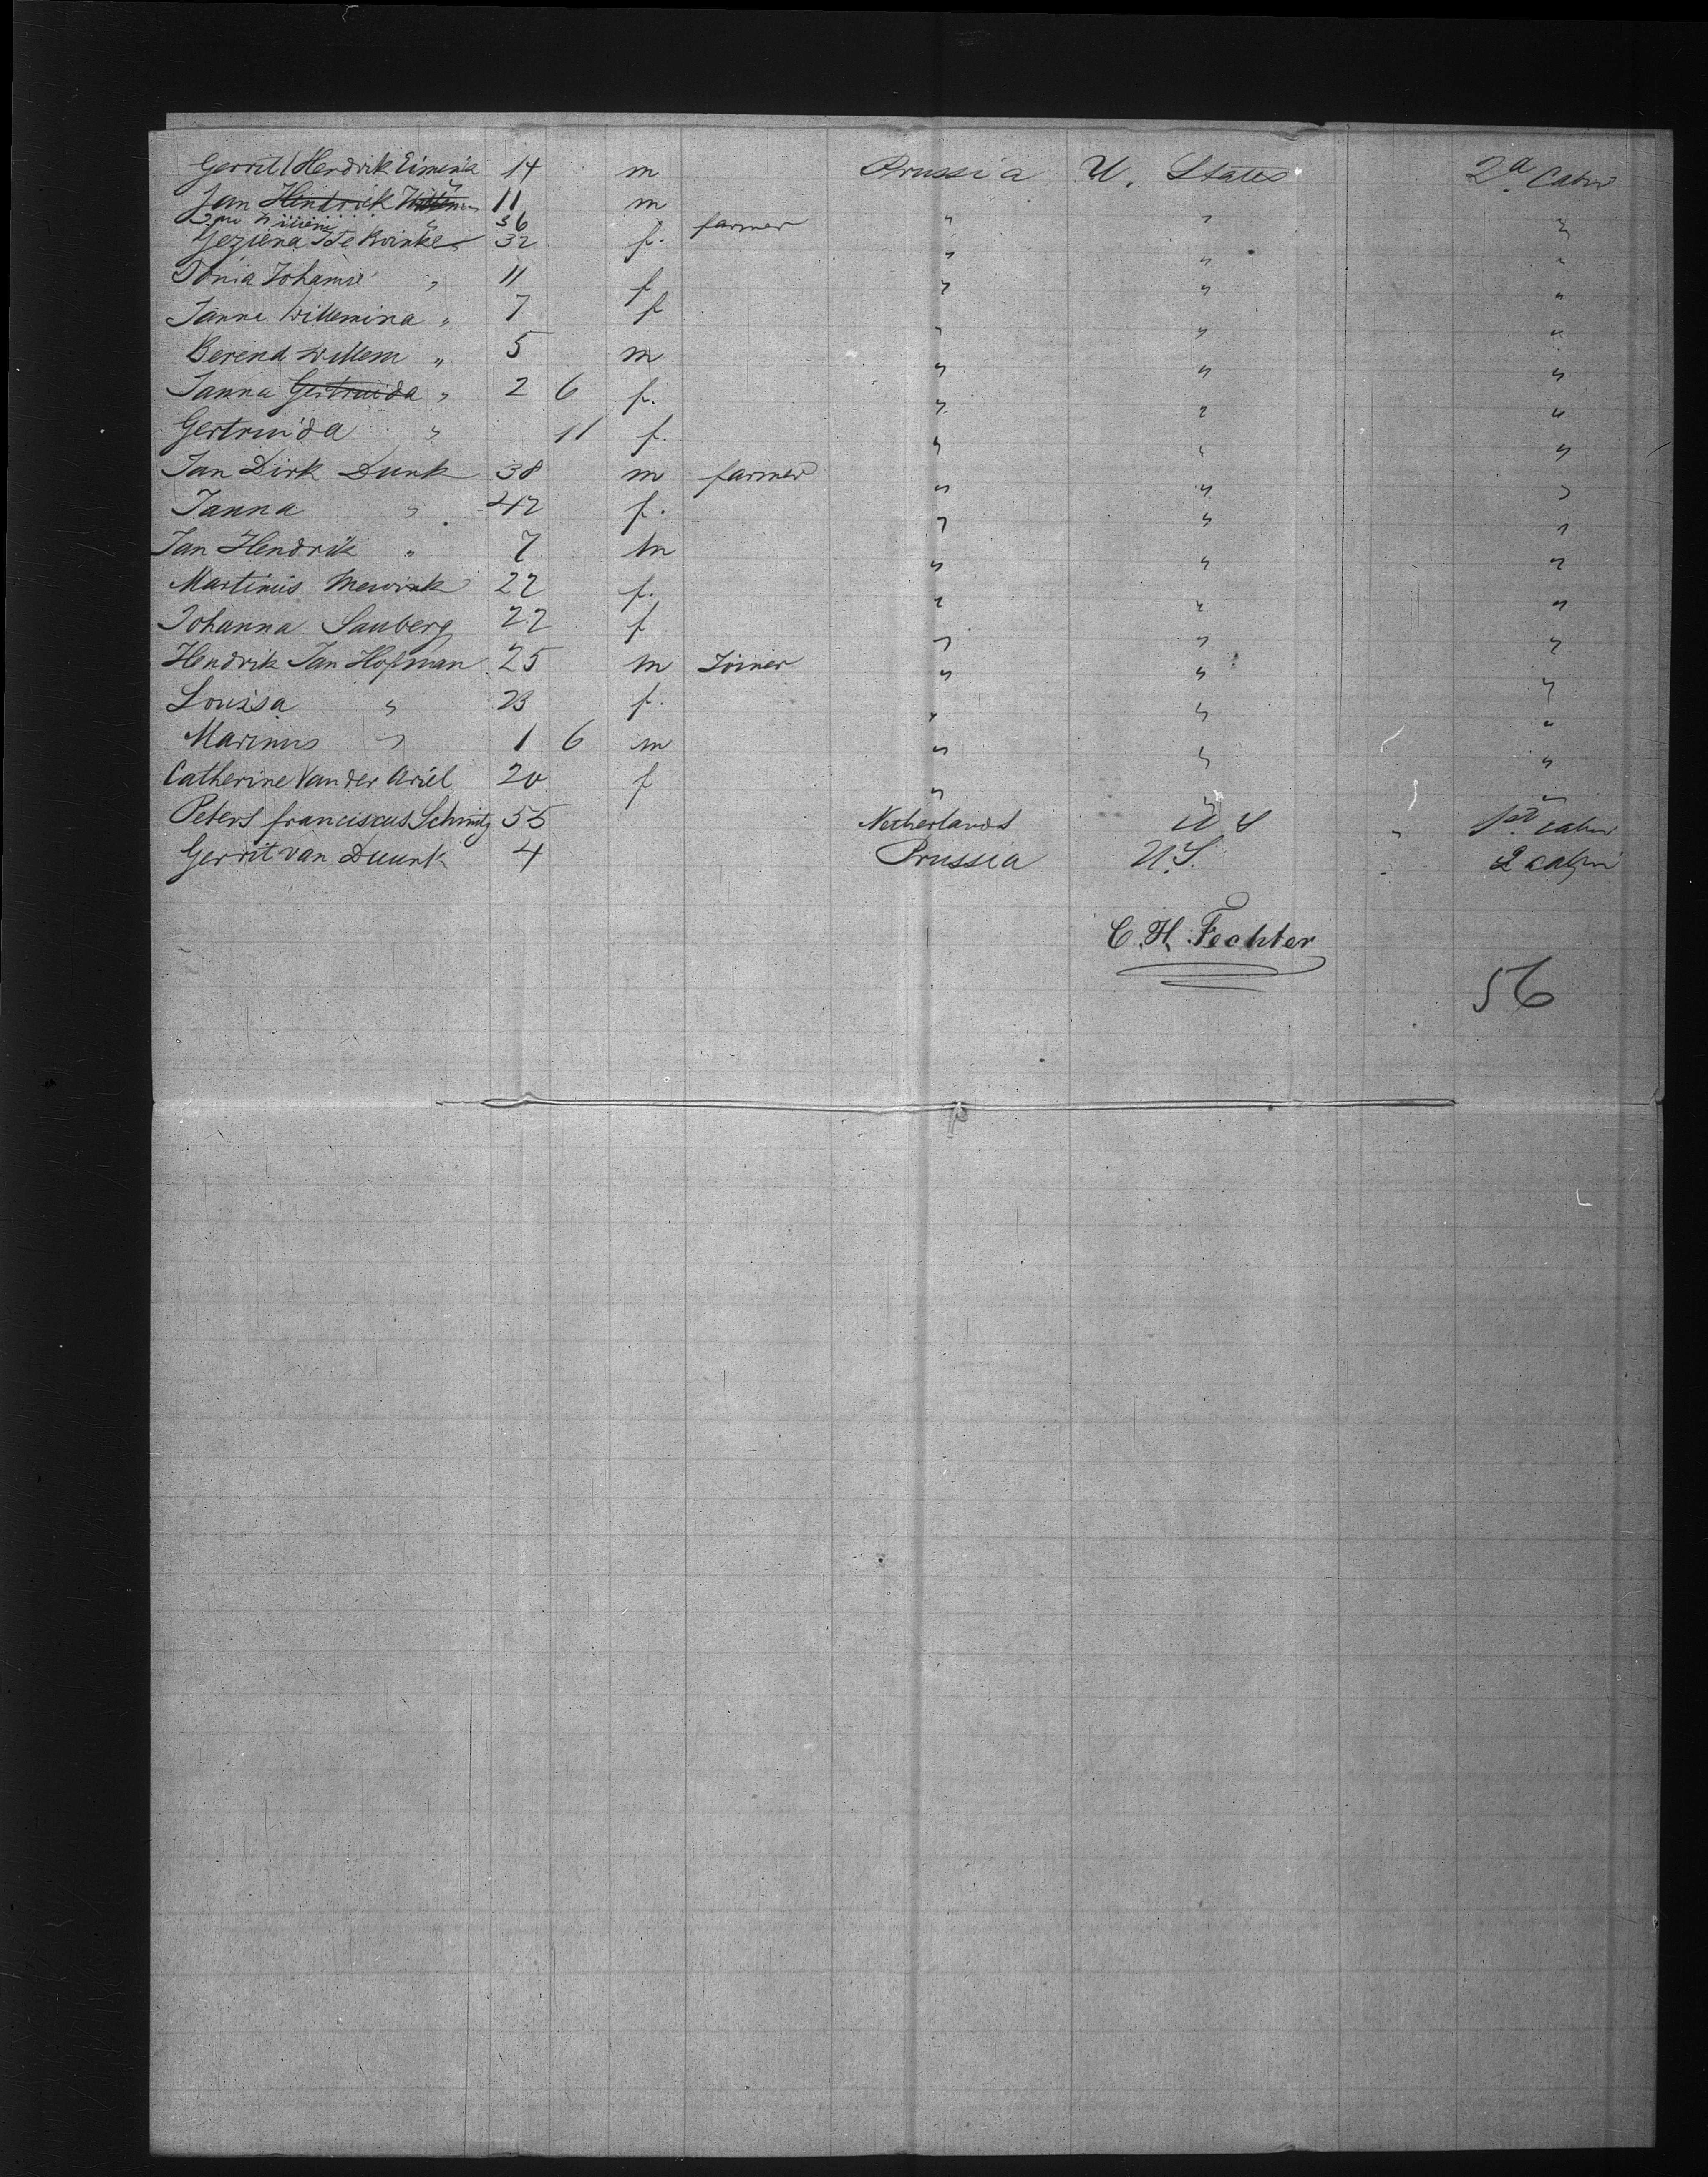 Gerrit Hendrik Eimink 14 m Prussia U. States 2d Cabin
Jan Hendrik Willem 11 m
Jan Willem " 36 farmer " " "
Geziena te Brinke 32 f. " " "
Tonia Johanna " 11 f " " "
Janna Willemina " 7 f " " "
Berend Willem " 5 m " " "
Janna Gertruida " 2 6 f. " " "
Gertruida " 11 f. " " "
Jan Dirk Dunk 38 m farmer " " "
Janna " 42 f. " " "
Jan Hendrik " 7 m " " "
Martinus 22 f. " " "
Johanna Sauberg 22 f " " "
Hendrik Jan Hofman 25 m Joiner " " "
Louisa " 23 f. " " "
Marinus " 1 6 m " " "
Catherine Van der Ariel 20 f " " "
Peters franciscus Schmitz 55 Netherlands U S " 1st cabin
Gerrit van Duunk 4 Prussia U.S. " 2 cabin
C. H. Fechter
56